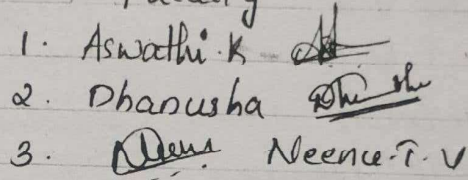 1. Aswathi.K
2. Dhanusha
3. Neenu.T.V